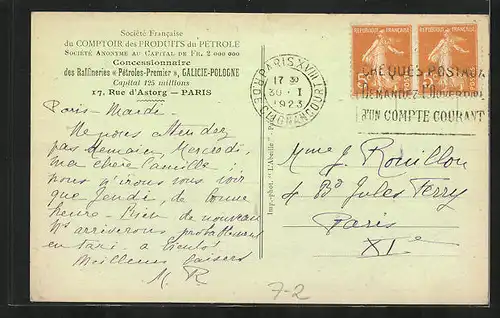 Société Française
du COMPTOIR des PRODUITS du PETROLE
SOCIÉTÉ ANONYME AU CAPITAL DE FR. 2 000 000
Concessionnaire
des Raffineries « Pétroles-Premier », GALICIE-POLOGNE
Capital 125 millions
17, Rue d'Astorg — PARIS
Paris - Mardi -
Ne nous attendez
pas demain, Mercredi,
ma chère Camille
nous n'irons vous voir
que Jeudi, de bonne
heure - Rien de nouveau
Ns arriverons probablement
en taxi à bientôt
Meilleurs baisers
M. R
Imp.-phot. "L'Abeille"
PARIS XVIII
17 30
30 - 1
1923
REPUBLIQUE FRANÇAISE
REPUBLIQUE FRANÇAISE
CHEQUES POSTAUX
DEMANDEZ L'OUVERTURE
D'UN COMPTE COURANT
Mme J. Rouillon
4 Bd Jules Ferry
Paris
XIe
7-2